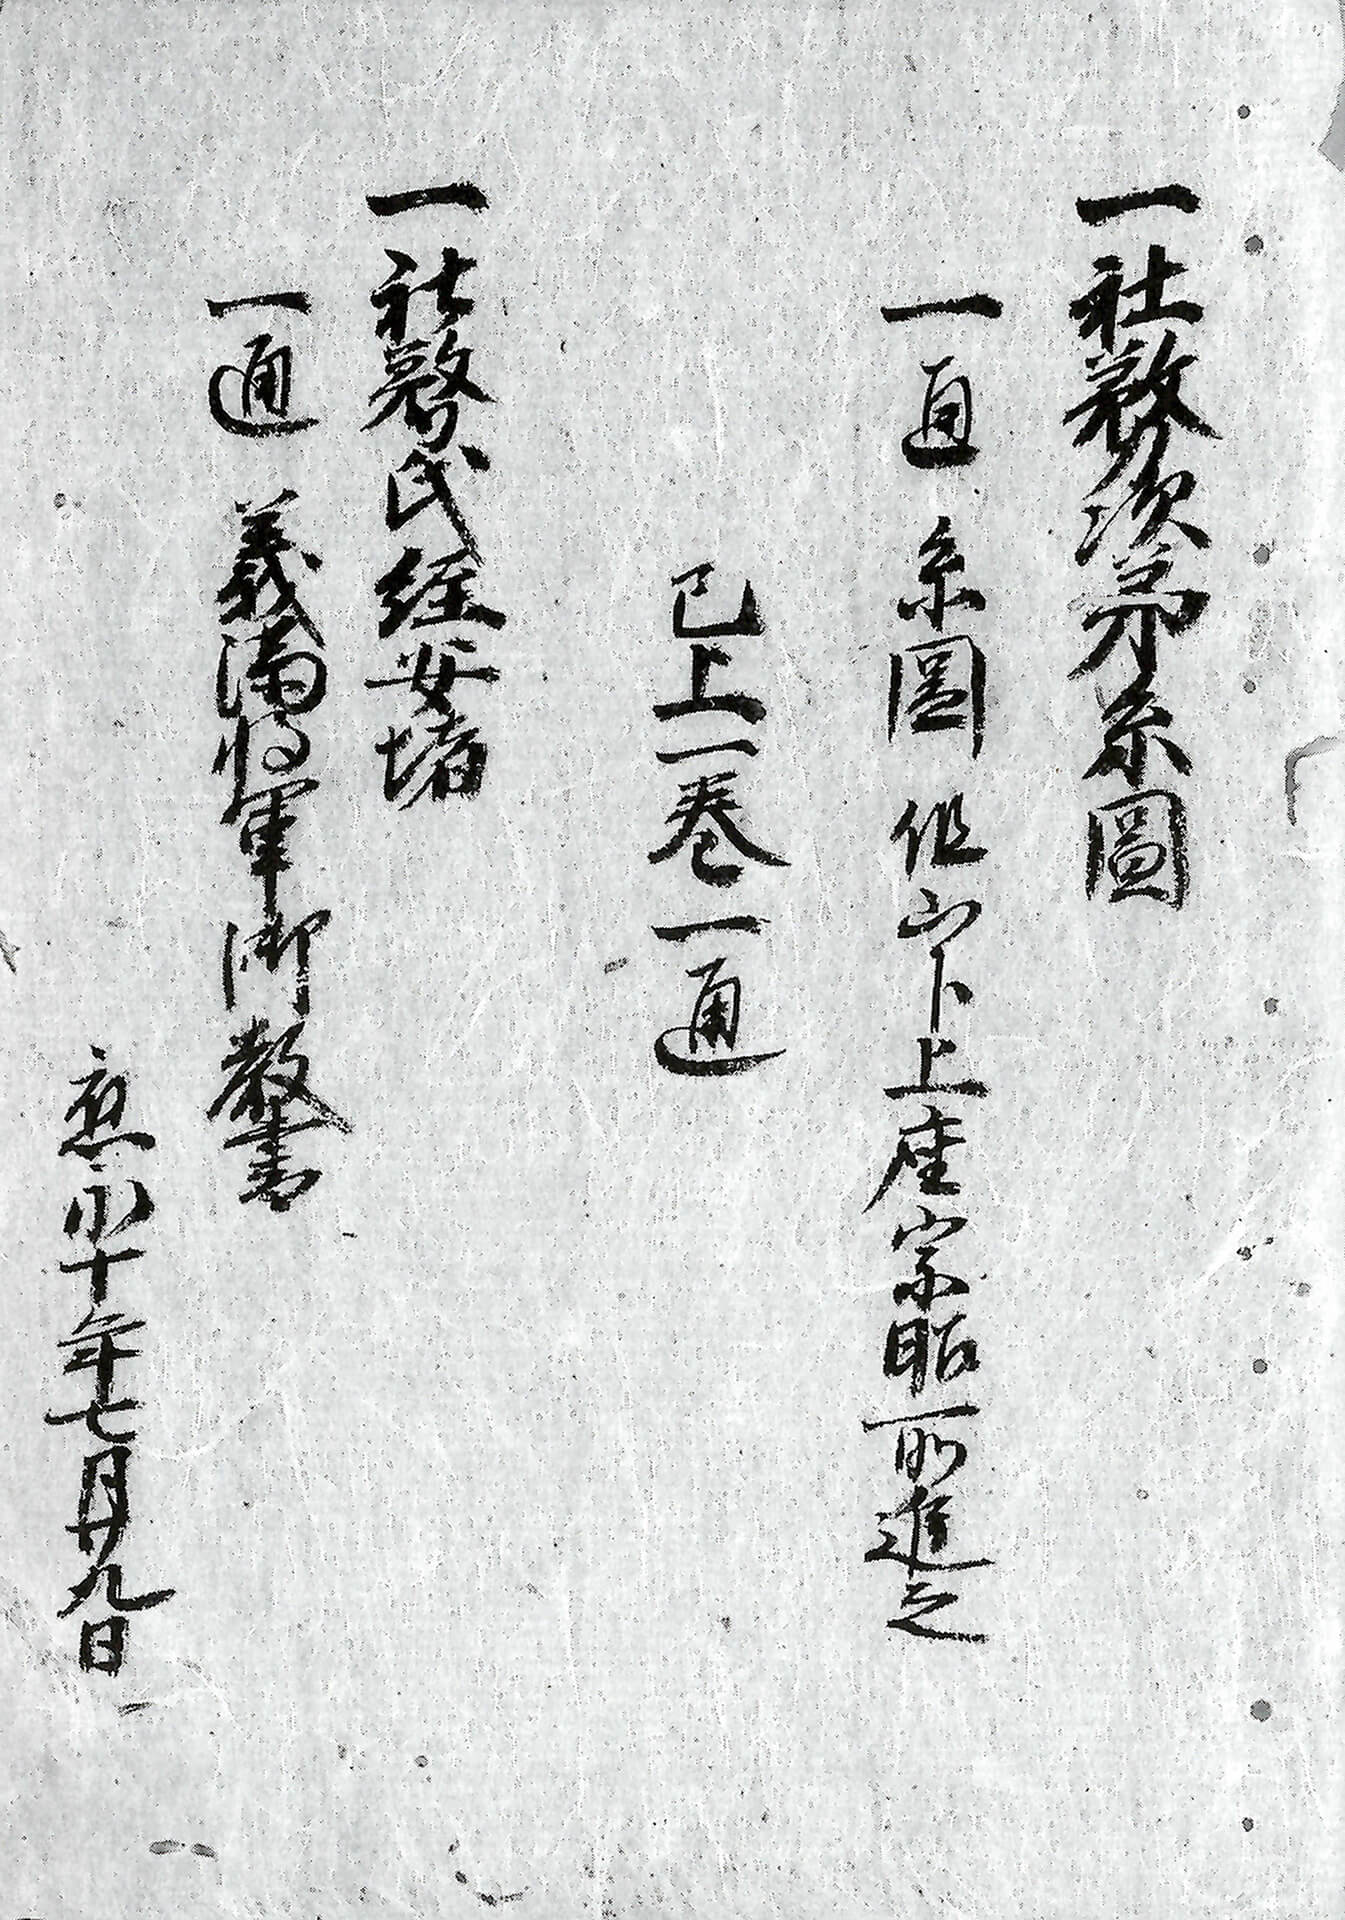 一社務次第系圖
一通 系圖 但山下上座宗昭所進之
已上一巻一通
一社務氏経安堵
一通 義満将軍御教書
應永十年七月廿九日